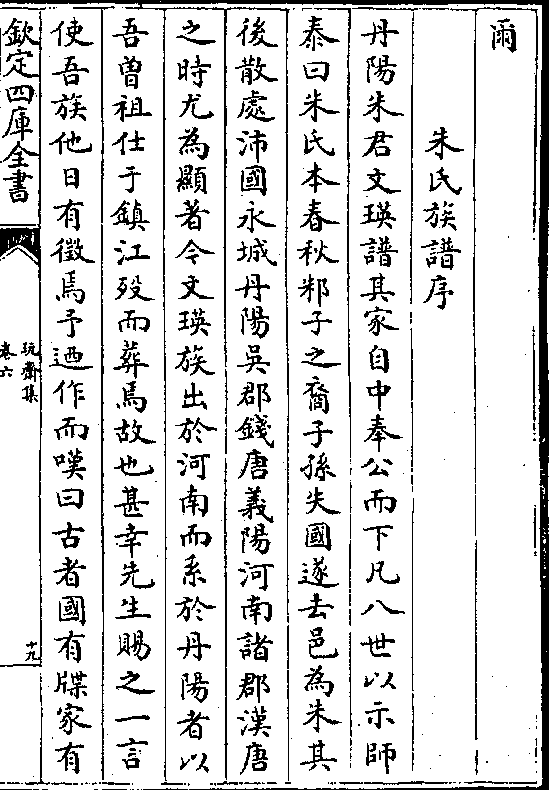 爾
朱氏族譜序
丹陽朱君文瑛譜其家自中奉公而下凡八世以示師
泰曰朱氏本春秋邾子之裔子孫失國遂去邑為朱其
後散處沛國永城丹陽吳郡錢唐義陽河南諸郡漢唐
之時尤為顯著今文瑛族出於河南而系於丹陽者以
吾曽祖仕于鎮江殁而葬焉故也甚幸先生賜之一言
使吾族他日有徴焉予迺作而嘆曰古者國有牒家有
欽定四庫全書
玩齋集
卷六
十九